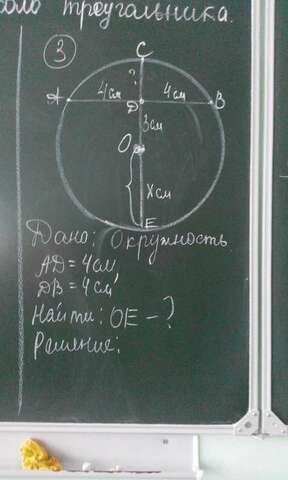 коло треугольника.
3
C
?
A 4см D 4см B
3см
O
Xсм
E
Дано: Окружность
AD = 4см,
DB = 4см
Найти: OE - ?
Решение: